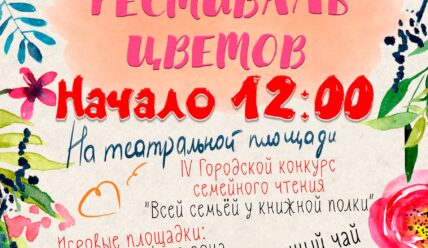 ФЕСТИВАЛЬ
ЦВЕТОВ
Начало 12:00
На театральной площади
IV Городской конкурс
семейного чтения
"Всей семьёй у книжной полки"
Игровые площадки:
чай